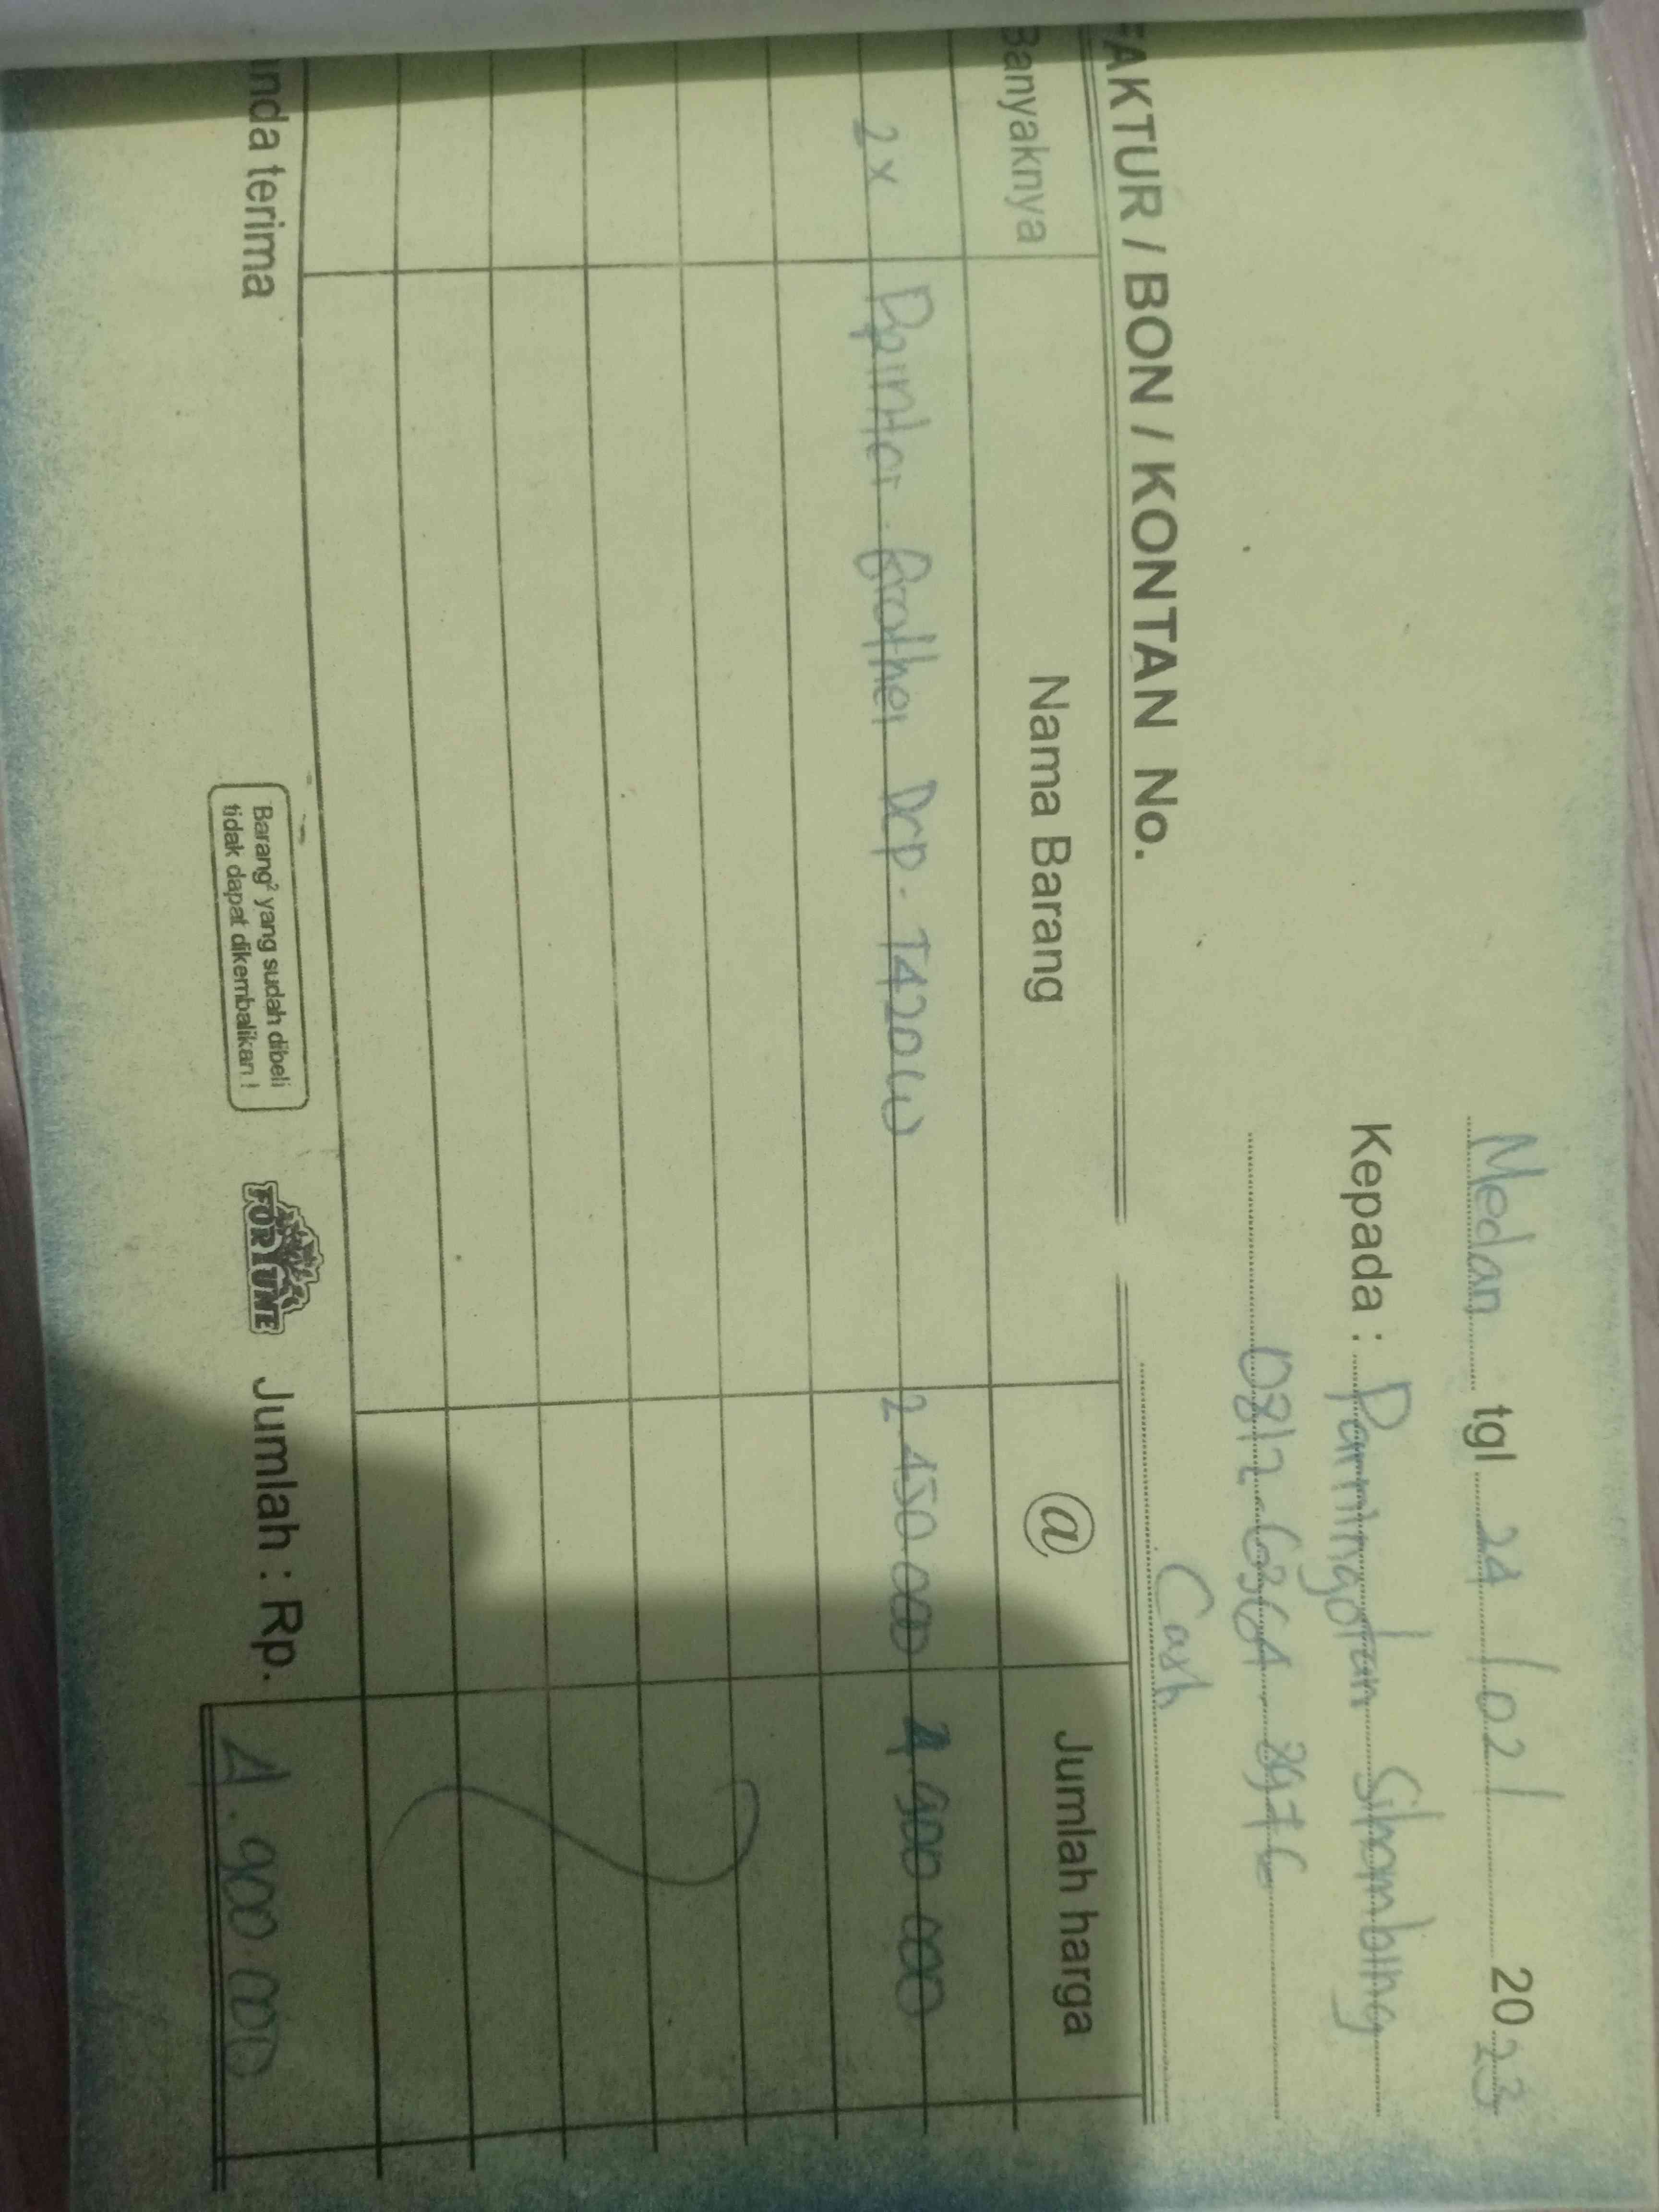 Medan tgl 24 / 02 / 20 23
Kepada : Paningotan Sihombing
0812 6364 8976
Cash
FAKTUR / BON / KONTAN No.
Banyaknya Nama Barang @ Jumlah harga
2 x Pprinter Brother Dcp - T420W 2 450 000 4 900 000
nda terima
Barang² yang sudah dibeli
tidak dapat dikembalikan !
FORTUNE
Jumlah : Rp. 4.900.000